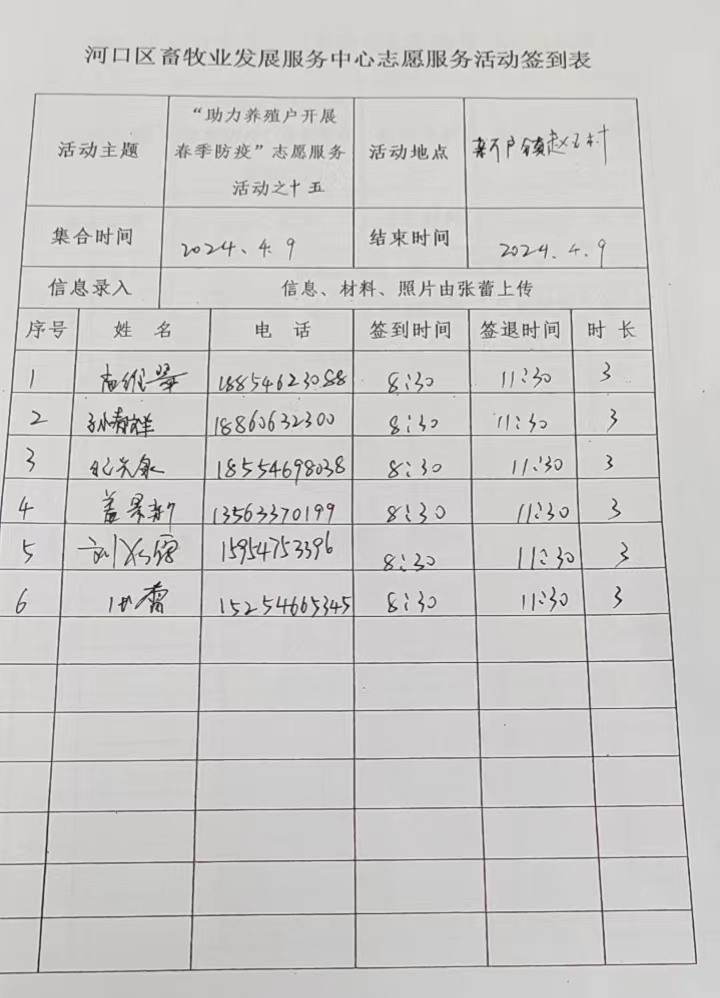 河口区畜牧业发展服务中心志愿服务活动签到表
活动主题 “助力养殖户开展春季防疫”志愿服务活动之十五 活动地点 新户镇赵王村
集合时间 2024、4.9 结束时间 2024.4.9
信息录入 信息、材料、照片由张蕾上传
序号 姓名 电话 签到时间 签退时间 时长
1 18854623088 8:30 11:30 3
2 18860632300 8:30 11:30 3
3 18554698038 8:30 11:30 3
4 盖景新 13563370199 8:30 11:30 3
5 15954753396 8:30 11:30 3
6 15254665345 8:30 11:30 3